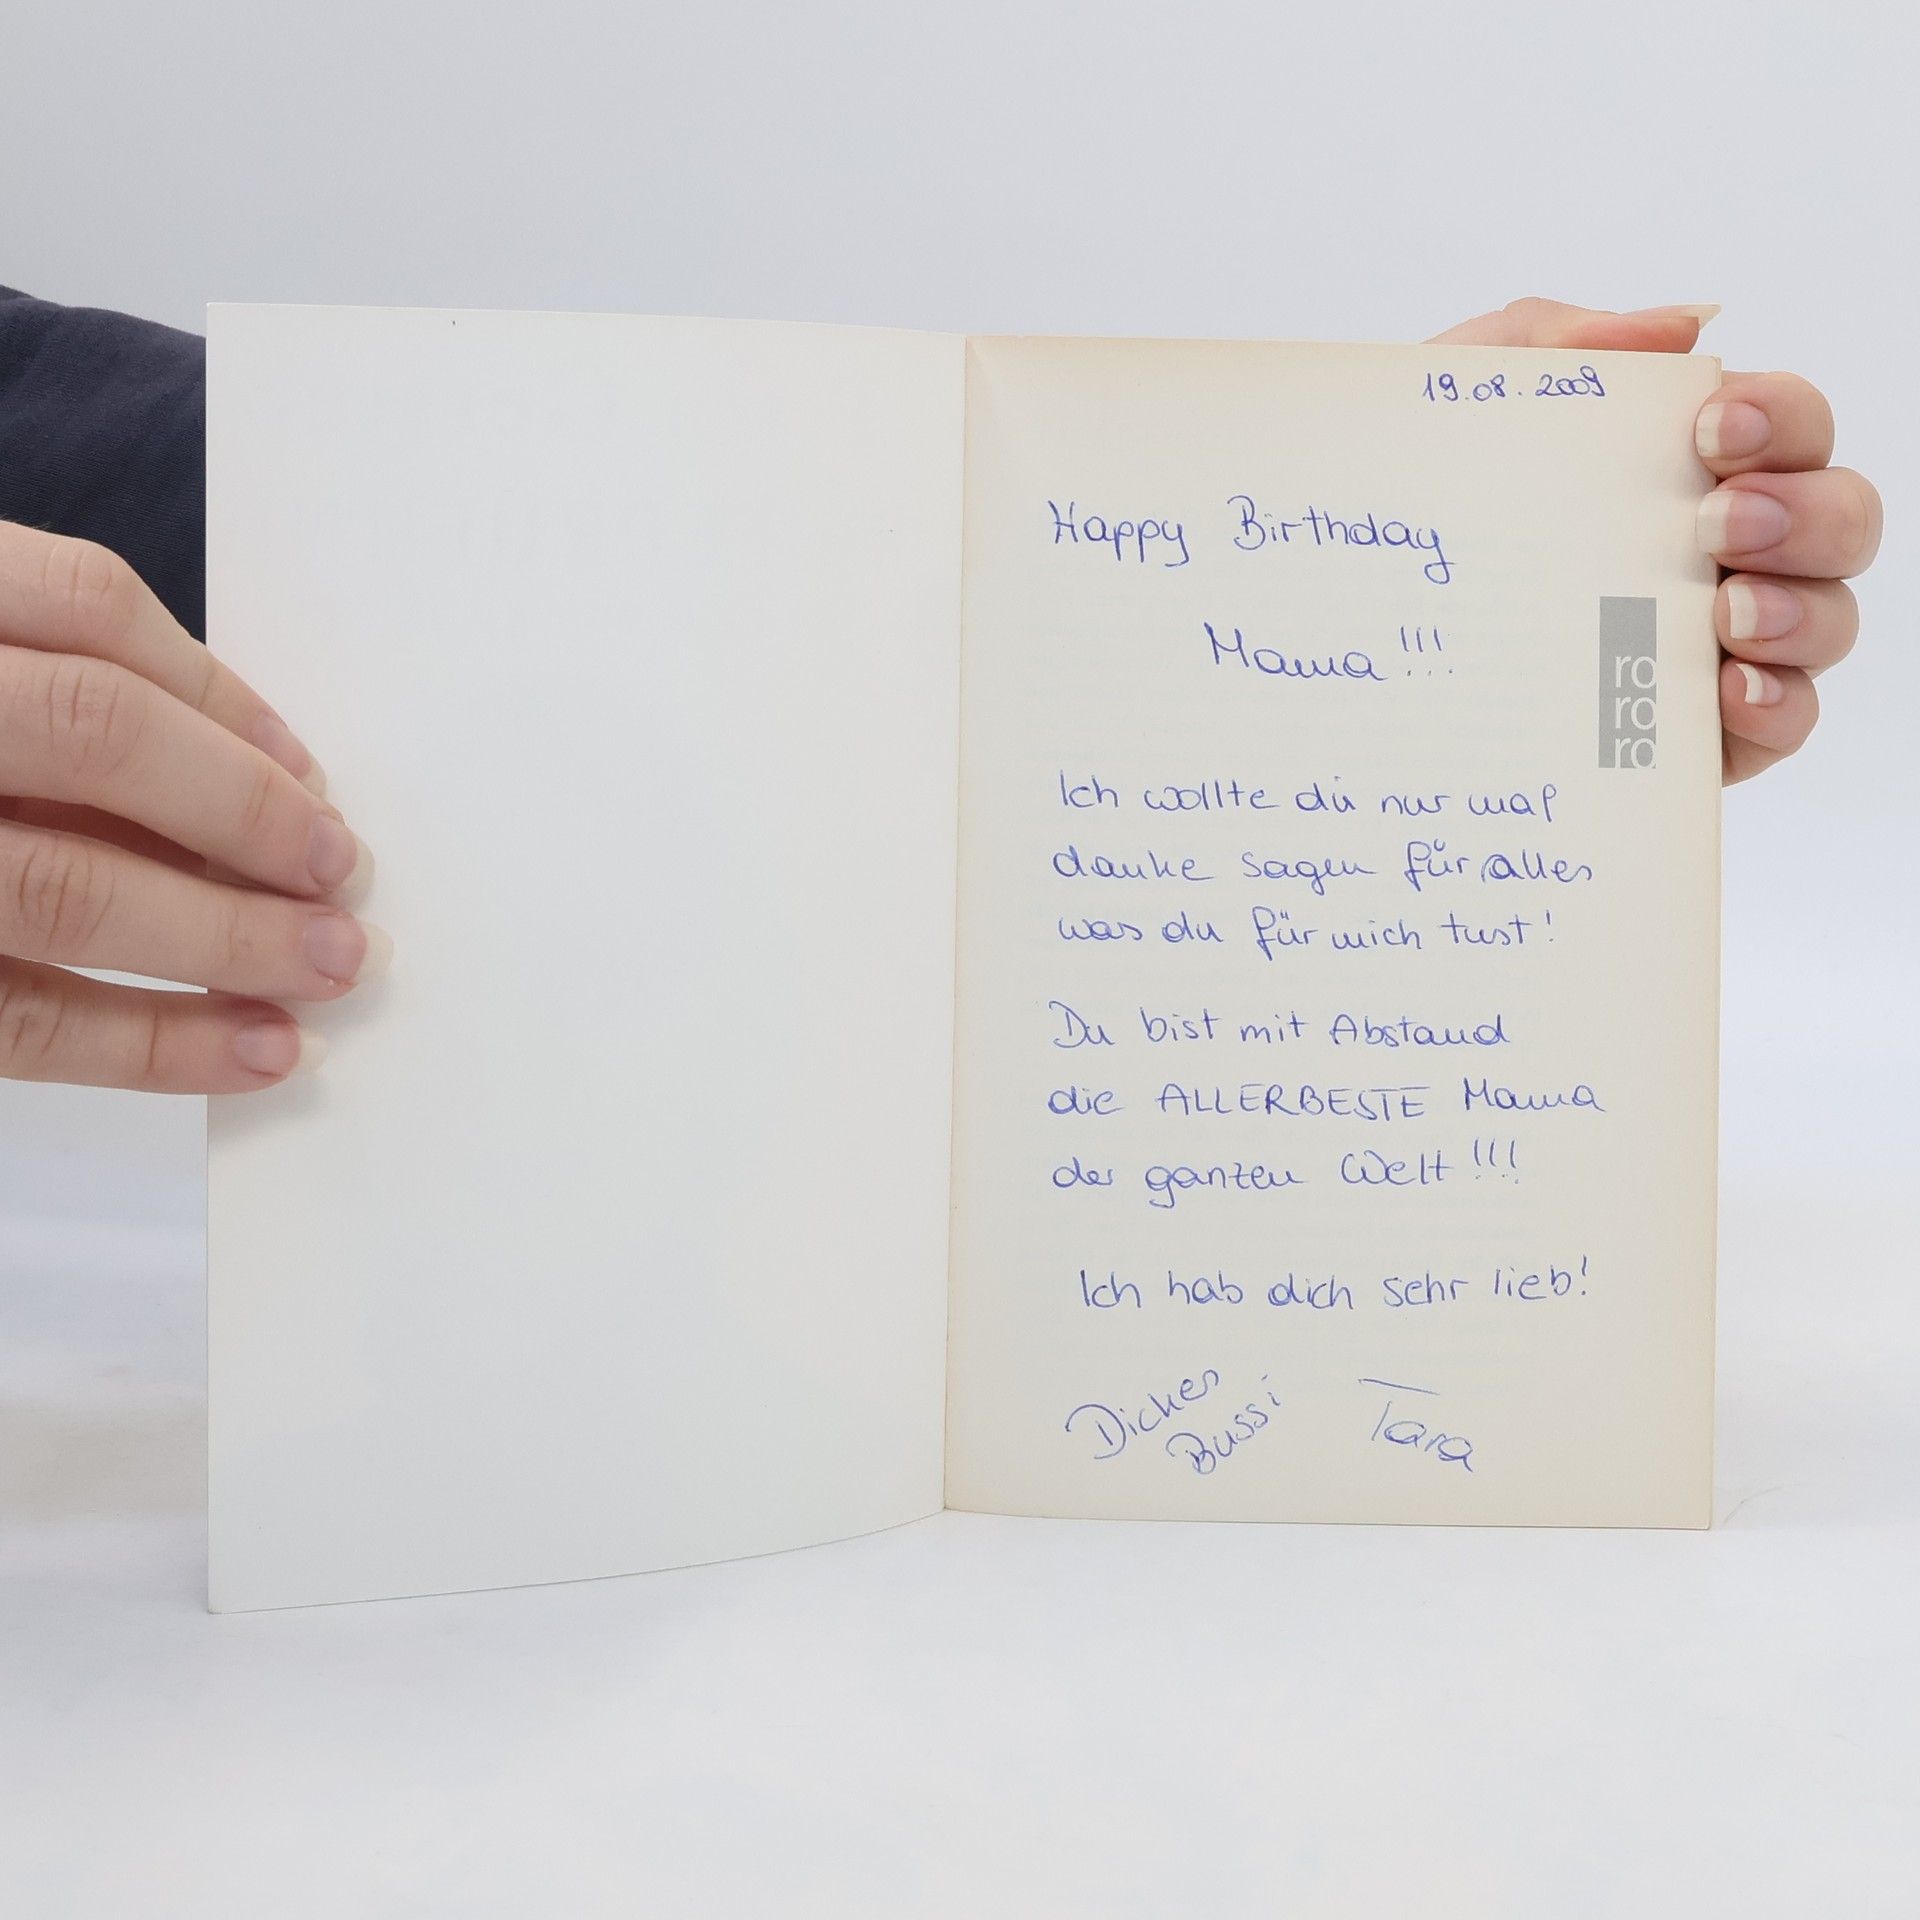 19.08.2009
Happy Birthday
Mama!!!
ro
ro
ro
Ich wollte dir nur mal
danke sagen für alles
was du für mich tust!
Du bist mit Abstand
die ALLERBESTE Mama
der ganzen Welt!!!
Ich hab dich sehr lieb!
Dickes
Bussi
Tara